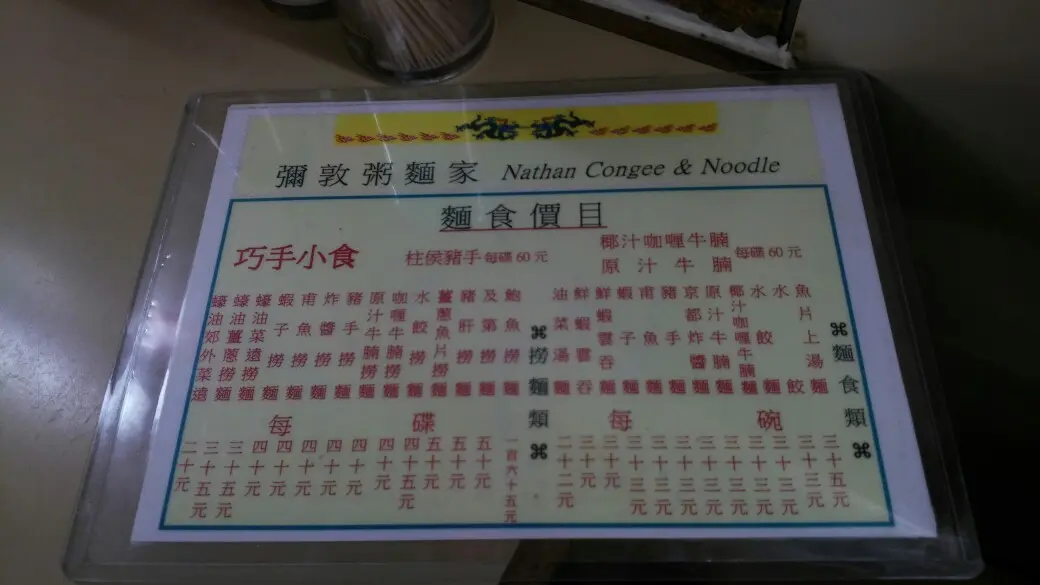 彌敦粥麵家 Nathan Congee & Noodle
麵食價目
巧手小食
柱侯豬手每碟60元
椰汁咖喱牛腩
原汁牛腩
每碟60元
⌘麵食類⌘
魚片上湯麵
水餃
水餃麵
椰汁咖喱牛腩麵
原汁牛腩麵
京都炸醬麵
豬手麵
甫魚麵
蝦子麵
鮮蝦雲吞麵
鮮蝦雲吞
油菜湯麵
每碗
三十五元
三十三元
三十三元
三十三元
三十三元
三十三元
三十三元
三十三元
三十三元
三十元
三十元
二十二元
⌘撈麵類⌘
鮑魚撈麵
及第撈麵
豬肝撈麵
薑蔥魚片撈麵
水餃撈麵
咖喱牛腩撈麵
原汁牛腩撈麵
豬手撈麵
炸醬撈麵
甫魚撈麵
蝦子撈麵
蠔油菜遠撈麵
蠔油薑蔥撈麵
蠔油郊外菜遠
每碟
一百六十五元
五十元
五十元
五十元
四十五元
四十元
四十元
四十元
四十元
四十元
四十元
三十五元
三十五元
二十元